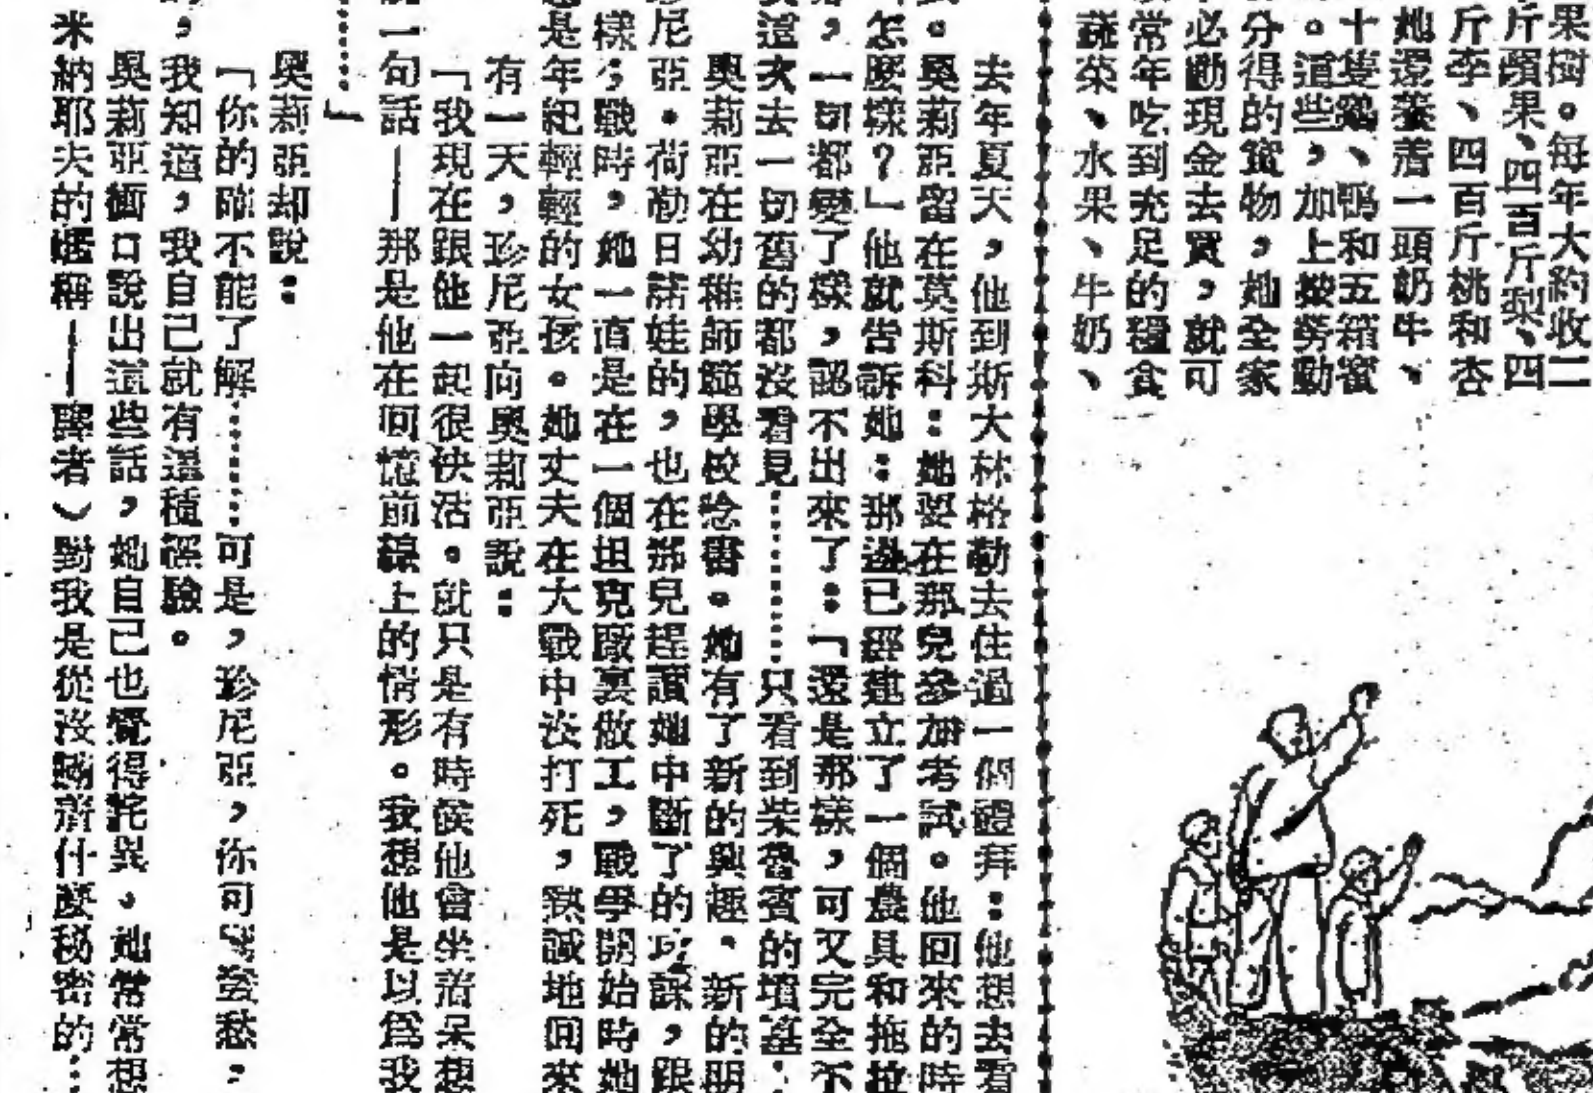 果樹。每年大約收二
斤蘋果、四百斤梨、四
斤李、四百斤桃和杏
她還養着一頭奶牛、
十隻鷄、鴨和五箱蜜
。這些，加上按勞動
分得的實物，她全家
必動現金去買，就可
常年吃到充足的糧食
蔬菜、水果、牛奶、
去年夏天，他到斯大林格勒去住過一個禮拜：他想去看
。奧莉亞留在莫斯科：她要在那兒參加考試。他回來的時
怎麼樣？」他就告訴她：那邊已經建立了一個農具和拖拉
，一切都變了樣，認不出來了：「還是那樣，可又完全不
這次去一切舊的都沒看見……只看到柴魯賓的墳墓.
奧莉亞在幼稚師範學校唸書。她有了新的興趣。新的朋
尼亞．荷勒日諾娃的，也在那兒趕讀她中斷了的功課，跟
樣；戰時，她一直是在一個坦克廠裏做工，戰爭開始時她
是年紀輕輕的女孩。她丈夫在大戰中沒打死，熱誠地回來
有一天，珍尼亞向奧莉亞說：
「我現在跟他一起很快活。就只是有時候他會坐着呆想
一句話——那是他在回憶前線上的情形。我想他是以爲我
……」
奧莉亞却說：
「你的確不能了解……可是，珍尼亞，你可別發愁，
，我知道，我自己就有這種經驗。
奧莉亞衝口說出這些話，她自己也覺得詫異。她常常想
米納耶夫的暱稱——譯者）對我是從沒隱瞞什麼秘密的…